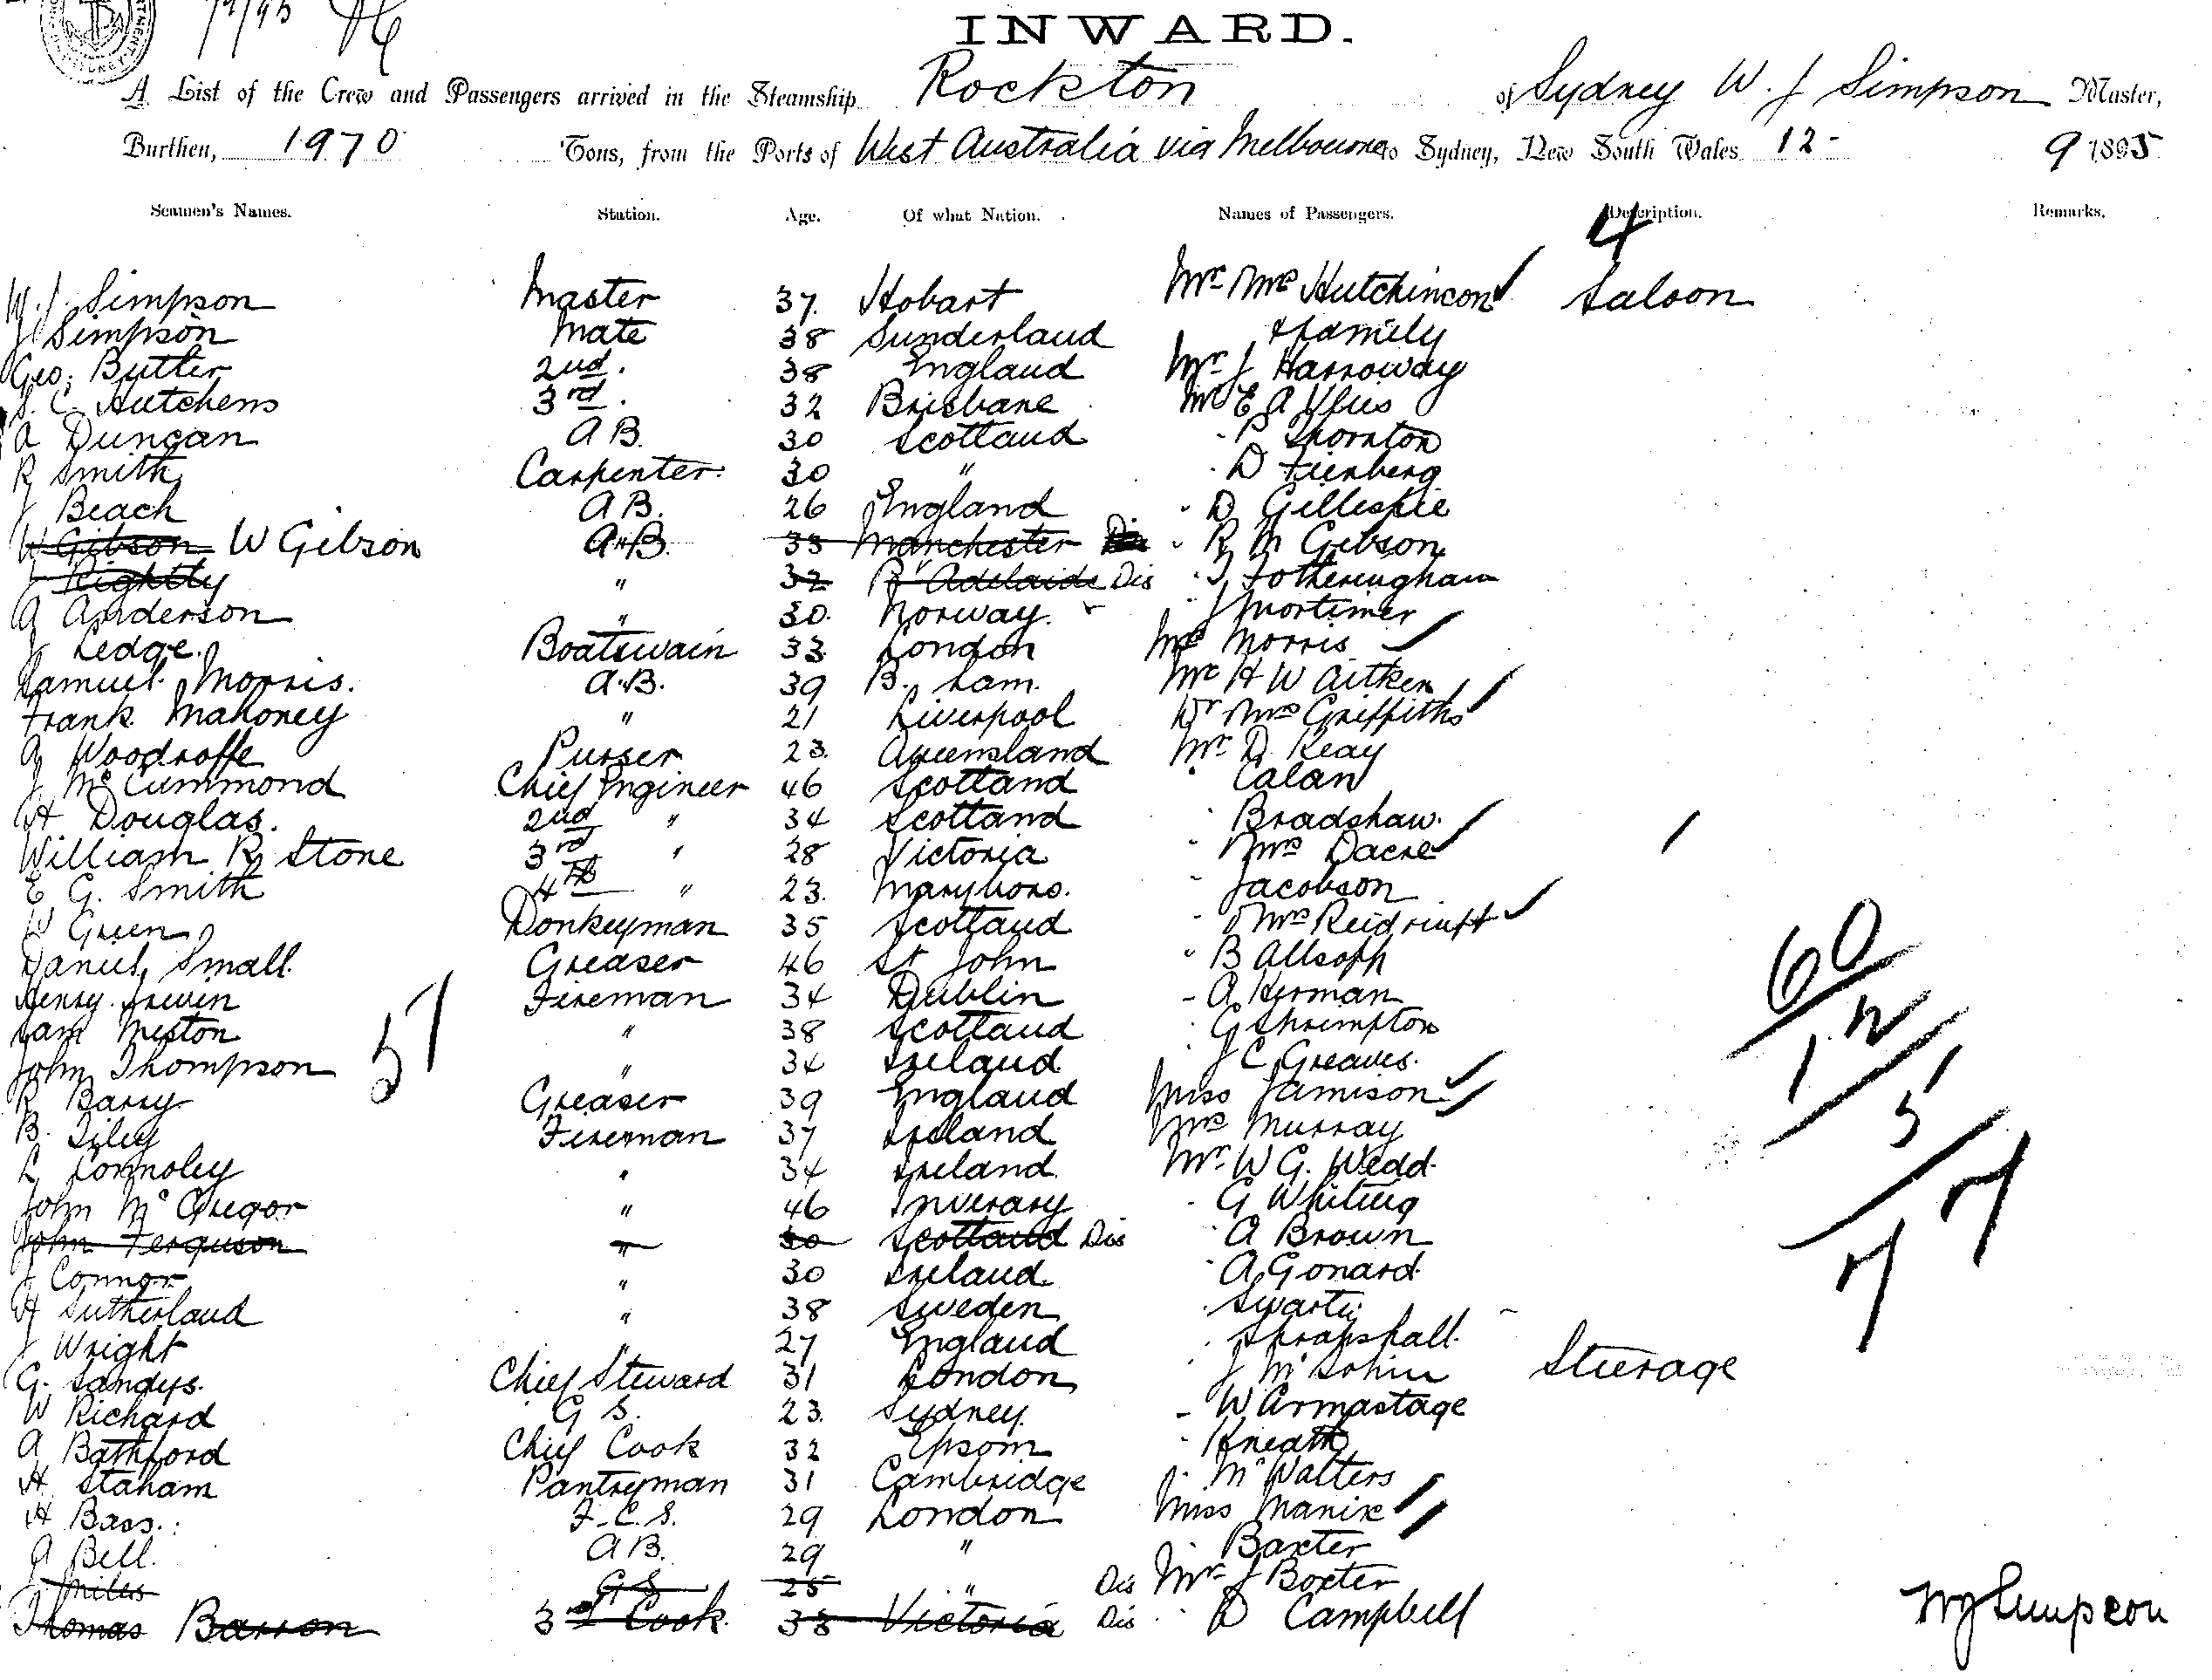 INWARD.
A List of the Crew and Passengers arrived in the Steamship Rockton of Sydney W. J Simpson Master,
Burthen, 1970 Tons, from the Ports of West Australia via Melbourne to Sydney, New South Wales 12 - 9 1895
Seamen's Names. Station. Age. Of what Nation. Names of Passengers. Description. Remarks.
4
W. J. Simpson Master 37. Hobart Mr Mrs Hutchincon Saloon
J Simpson Mate 38 Sunderland & family
Geo. Butler 2nd. 38 England Mr J Harroway
S. C. Hutchens 3rd. 32 Brisbane Mr E A
A Duncan A B. 30 Scotland - P Thornton
R Smith Carpenter. 30 " D
J Beach A B. 26 England - D Gillespie
W Gibson W Gibson A.B. 33 Manchester Dis R M Gibson
J Rightly " 32 P Adelaide Dis Fotheringham
A Anderson " 30. Norway. J Mortimer
J Ledge. Boatswain 33 London Morris
Samuel Morris. A.B. 39 B. ham. Mr H W Aitken
Frank Mahoney " 21 Liverpool Dr Mrs Griffiths
A Woodroffe Purser 23. Queensland Mr D Keay
J McCummond Chief Engineer 46 Scotland Calan
H Douglas. 2nd " 34 Scotland Bradshaw.
William R Stone 3rd " 28 Victoria Mrs Dacre
E. G. Smith 4th " 23. Maryboro. Jacobson
W Green Donkeyman 35 Scotland Mrs Reid
Daniel Small Greaser 46 St John B Allsoph
Henry Irwin Fireman 34 Dublin - A Herman
Sam Meston " 38 Scotland G Shrimpton
John Thompson " 34 Ireland J C Greaves.
R Barry Greaser 39 England Miss Jamison
B. Fireman 37 Ireland Mrs Murray
L Connoley " 34 Ireland Mr W G. Wedd
John McGregor " 46 Inverary G Whiting
John Ferguson " 30 Scotland Dis A Brown
J Connor " 30 Ireland A Gonard
H Sutherland " 38 Sweden
J Wright " 27 England
G. Sandys. Chief Steward 31 London Steerage
W Richard G S. 23. Sydney. - W Armastage
A Bathford Chief Cook 32 Epsom
H Staham Pantryman 31 Cambridge McWalters
H Bass. F. C. S. 29 London Miss Manix
A Bell. A B. 29 " Baxter
J Miles G S 25 " Dis Mr J Boxter
Thomas Barron 3rd Cook 38 Victoria Dis D Campbell
51
60
12
51
WJ Simpson